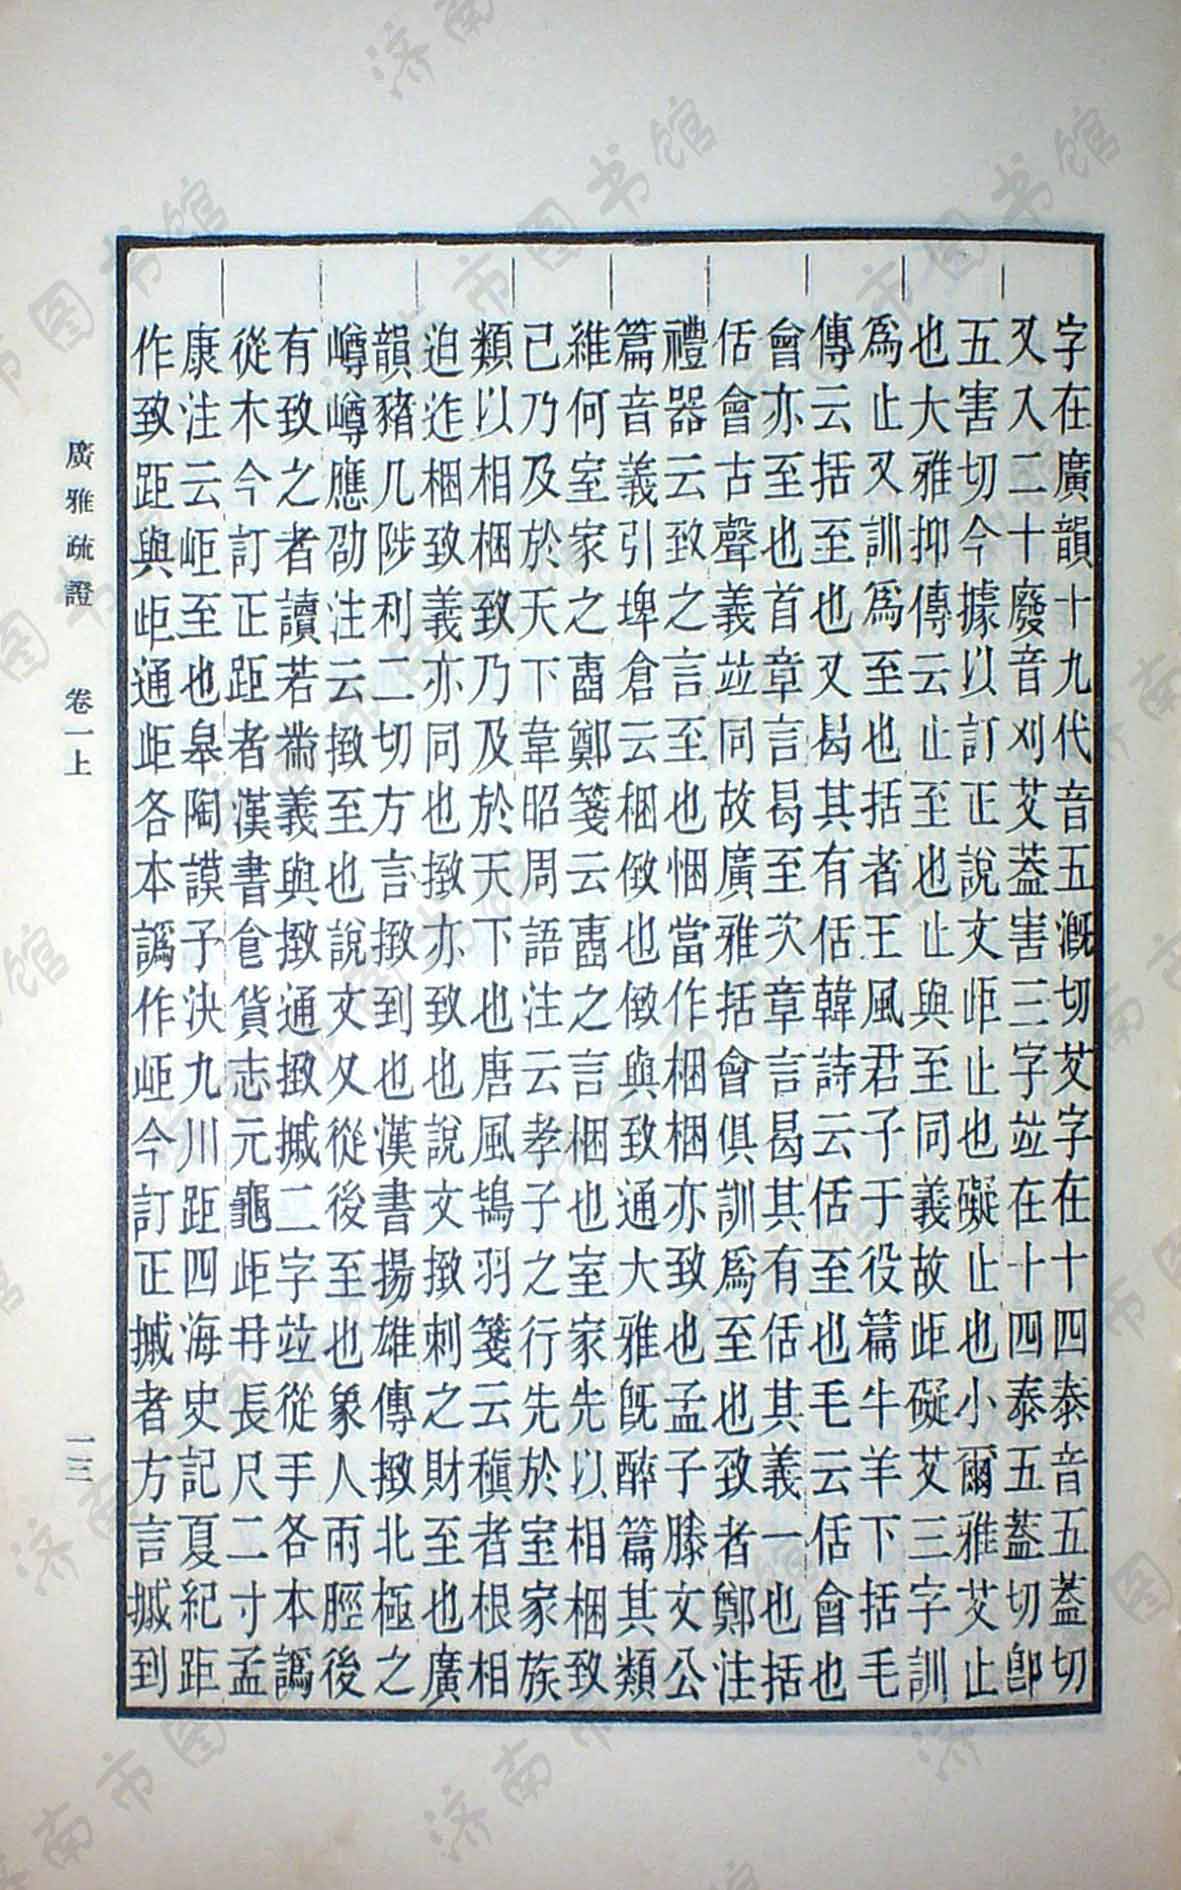 字在廣韻十九代音五漑切艾字在十四泰音五蓋切
又入二十廢音刈艾蓋害三字竝在十四泰五蓋切卽
五害切今據以訂正說文歫止也礙止也小爾雅艾止
也大雅抑傳云止至也止與至同義故歫礙艾三字訓
爲止又訓爲至也括者王風君子于役篇牛羊下括毛
傳云括至也又曷其有佸韓詩云佸至也毛云佸會也
會亦至也首章言曷至次章言曷其有佸其義一也括
佸會古聲義竝同故廣雅括會俱訓爲至也致者鄭注
禮器云致之言至也悃當作梱梱亦致也孟子滕文公
篇音義引埤倉云梱㨖也㨖與致通大雅旣醉篇其類
維何室家之壼鄭箋云壼之言梱也室家先以相梱致
己乃及於天下韋昭周語注云孝子之行先於室家族
類以相梱致乃及於天下也唐風鴇羽箋云稹者根相
迫迮梱致義亦同也㨖亦致也說文㨖刺之財至也廣
韻豬几陟利二切方言㨖到也漢書揚雄傳㨖北極之
嶟嶟應劭注云㨖至也說文夂從後至也象人兩脛後
有致之者讀若黹義與㨖通㨖摵二字竝從手各本譌
從木今訂正距者漢書食貨志元龜歫冄長尺二寸孟
康注云岠至也皋陶謨予決九川距四海史記夏紀距
作致距與歫通歫各本譌作岠今訂正摵者方言摵到
廣雅疏證 卷一上 一三
济南市图书馆